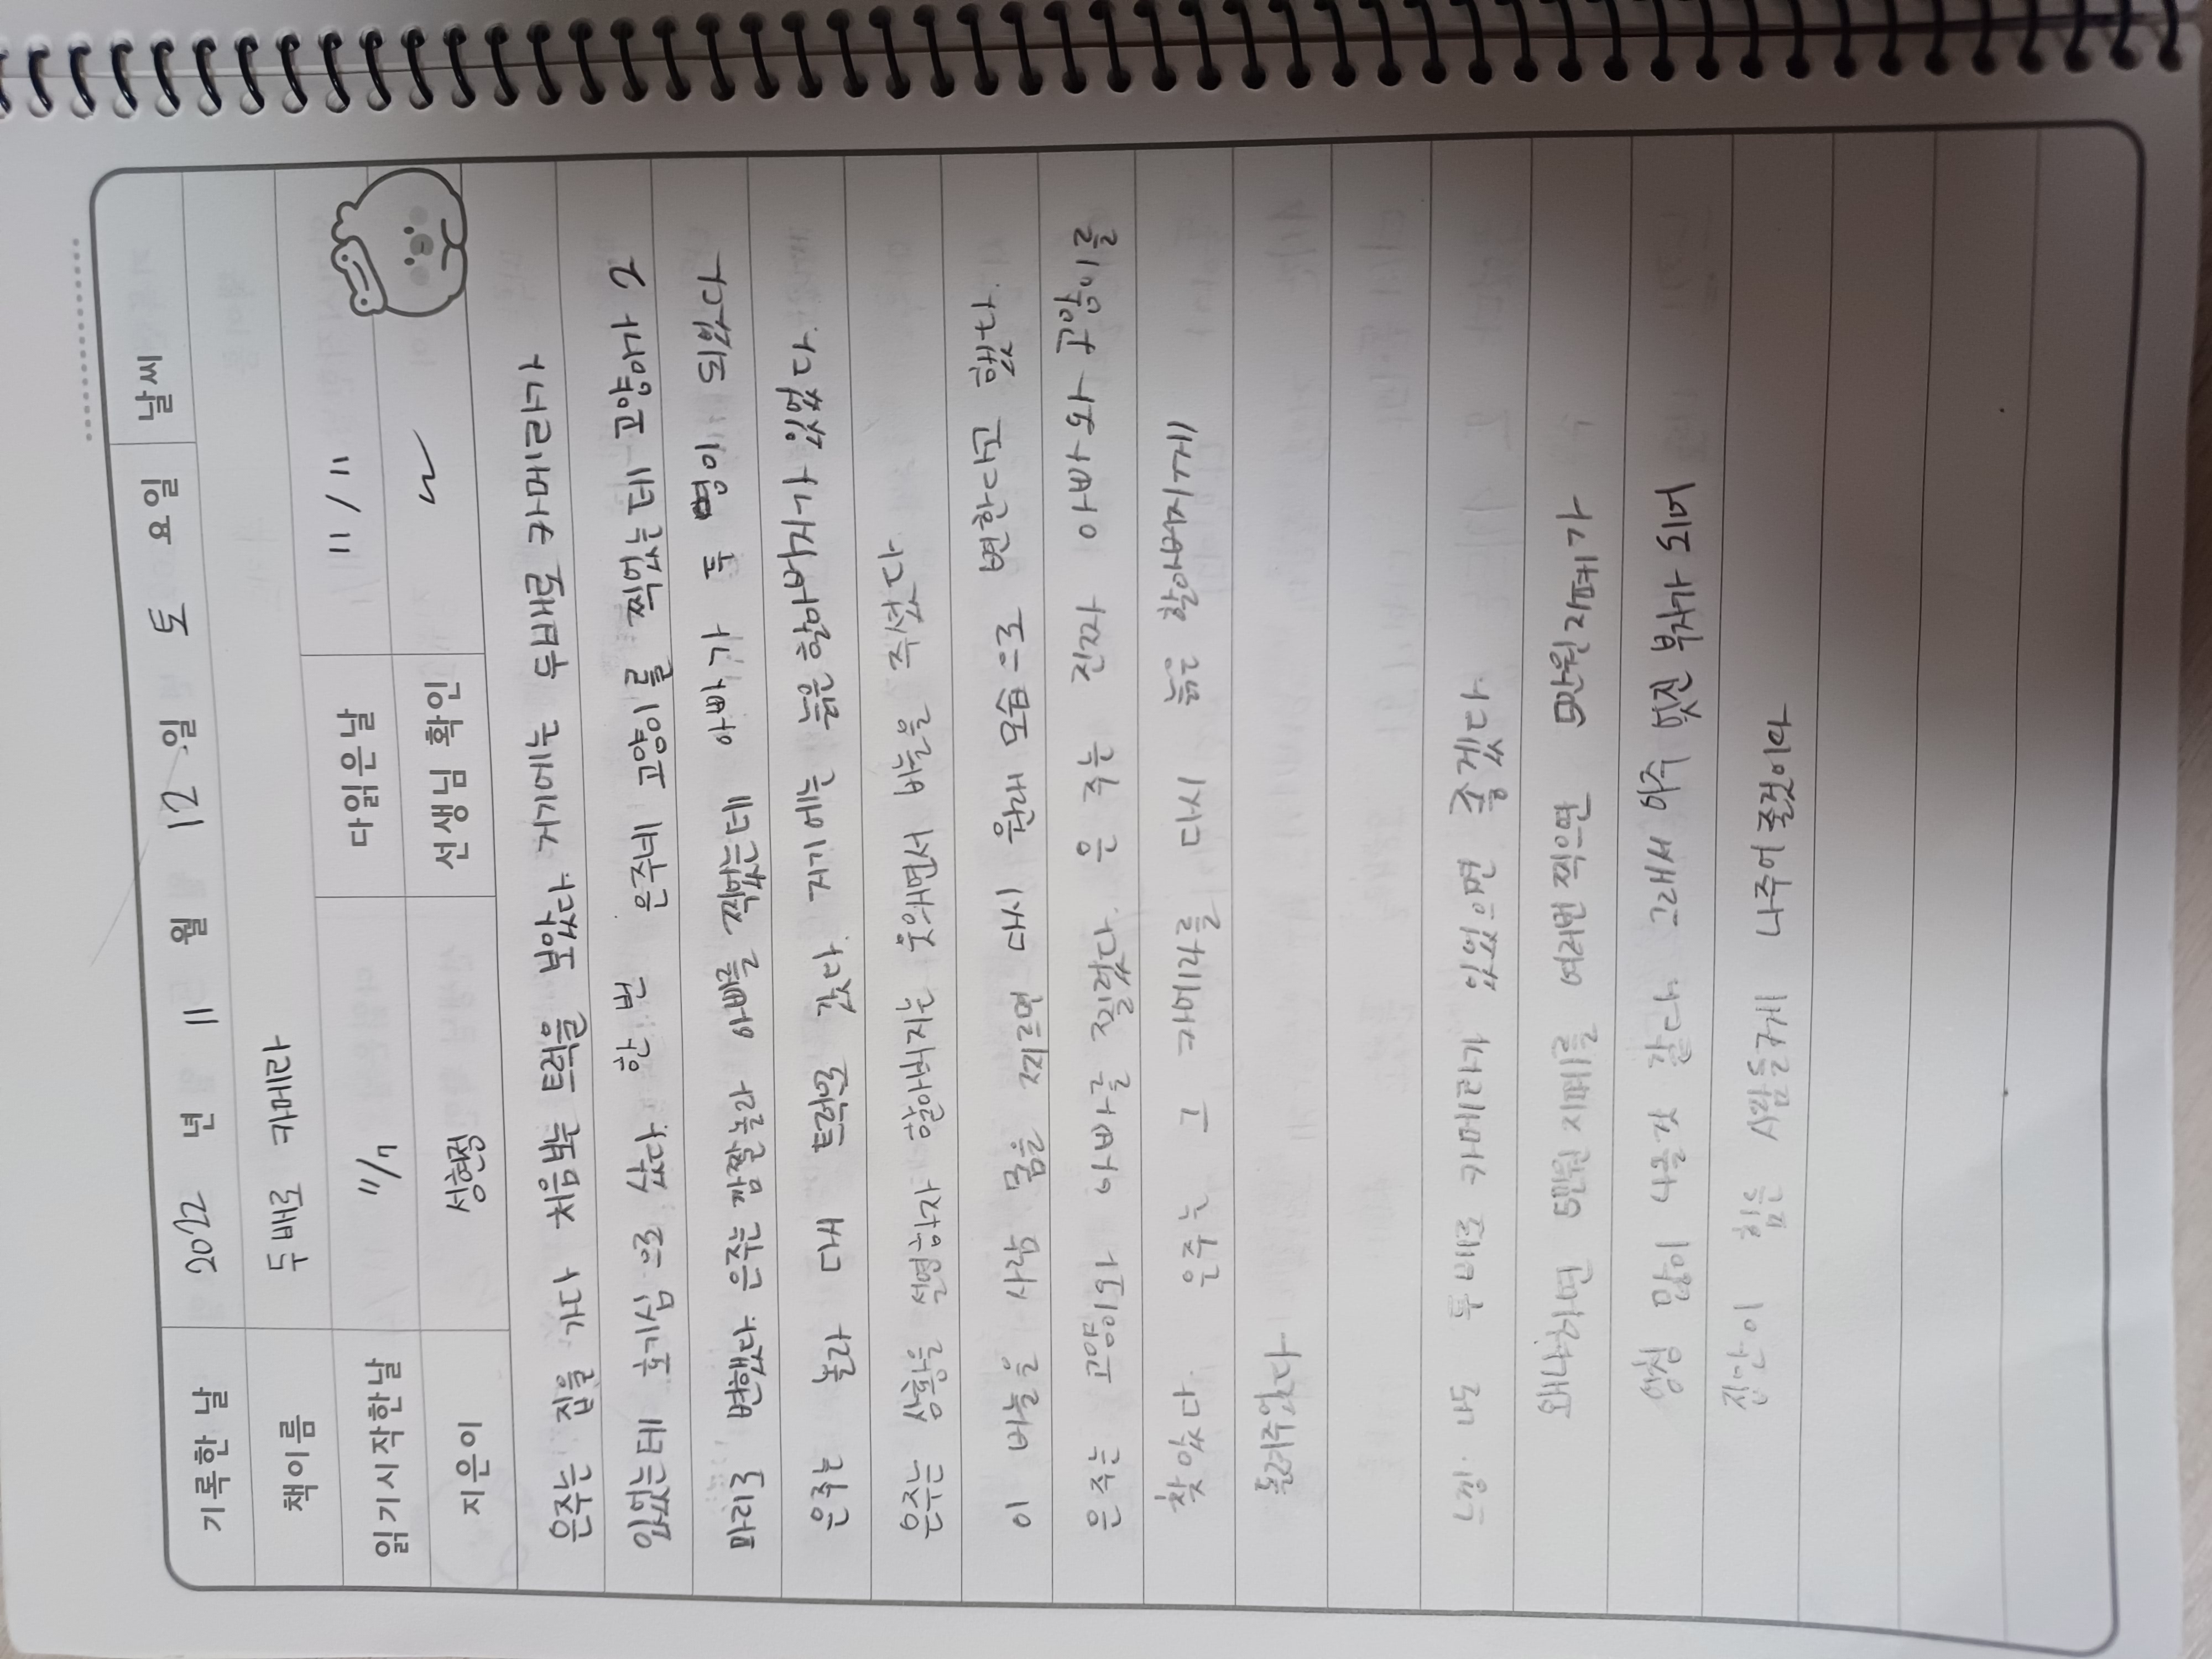 기록한 날 2022 년 11 월 12 일 토 요일 날씨
책이름 두 배로 카메라
읽기시작한날 11/7 다읽은날 11/11
지은이 성현정 선생님 확인
은주는 집을 가다 처음보는 트럭을 보았다. 거기에는 두배로 카메라가
있었는데 호기심 으로 샀다. 한 번 은주네 고양이를 찍었는데 고양이가 2
마리로 변했다. 은주는 깜짝놀라 아빠를 찍었는데 아빠가 두 명이 되었다
은주는 놀라 다시 트럭으로 갔다. 거기에는 늙은 할아버지가 있었다.
은주는 상황을 설명하자 할아버지는 웃으시면서 바늘을 주셨다.
이 바늘을 사람 몸을 찌르면 다시 원래 모습으로 변한다고 했다.
은주는 고양이와 아빠를 찔렀다. 은주는 진짜 아빠와 고양이를
찾았다. 은주는 그 카메라를 다시 늙은 할아버지게
돌려주었다
느낌: 나도 두배로 카메라가 있었으면 좋겠다.
왜냐하면 5만원 지폐를 여러번 찍으면 5만원 지폐가
엄청 많이 나올것 같다. 그래서 아주 멋진 부자가 되어
집안이 힘든 사람들게 나주어 줄것이다